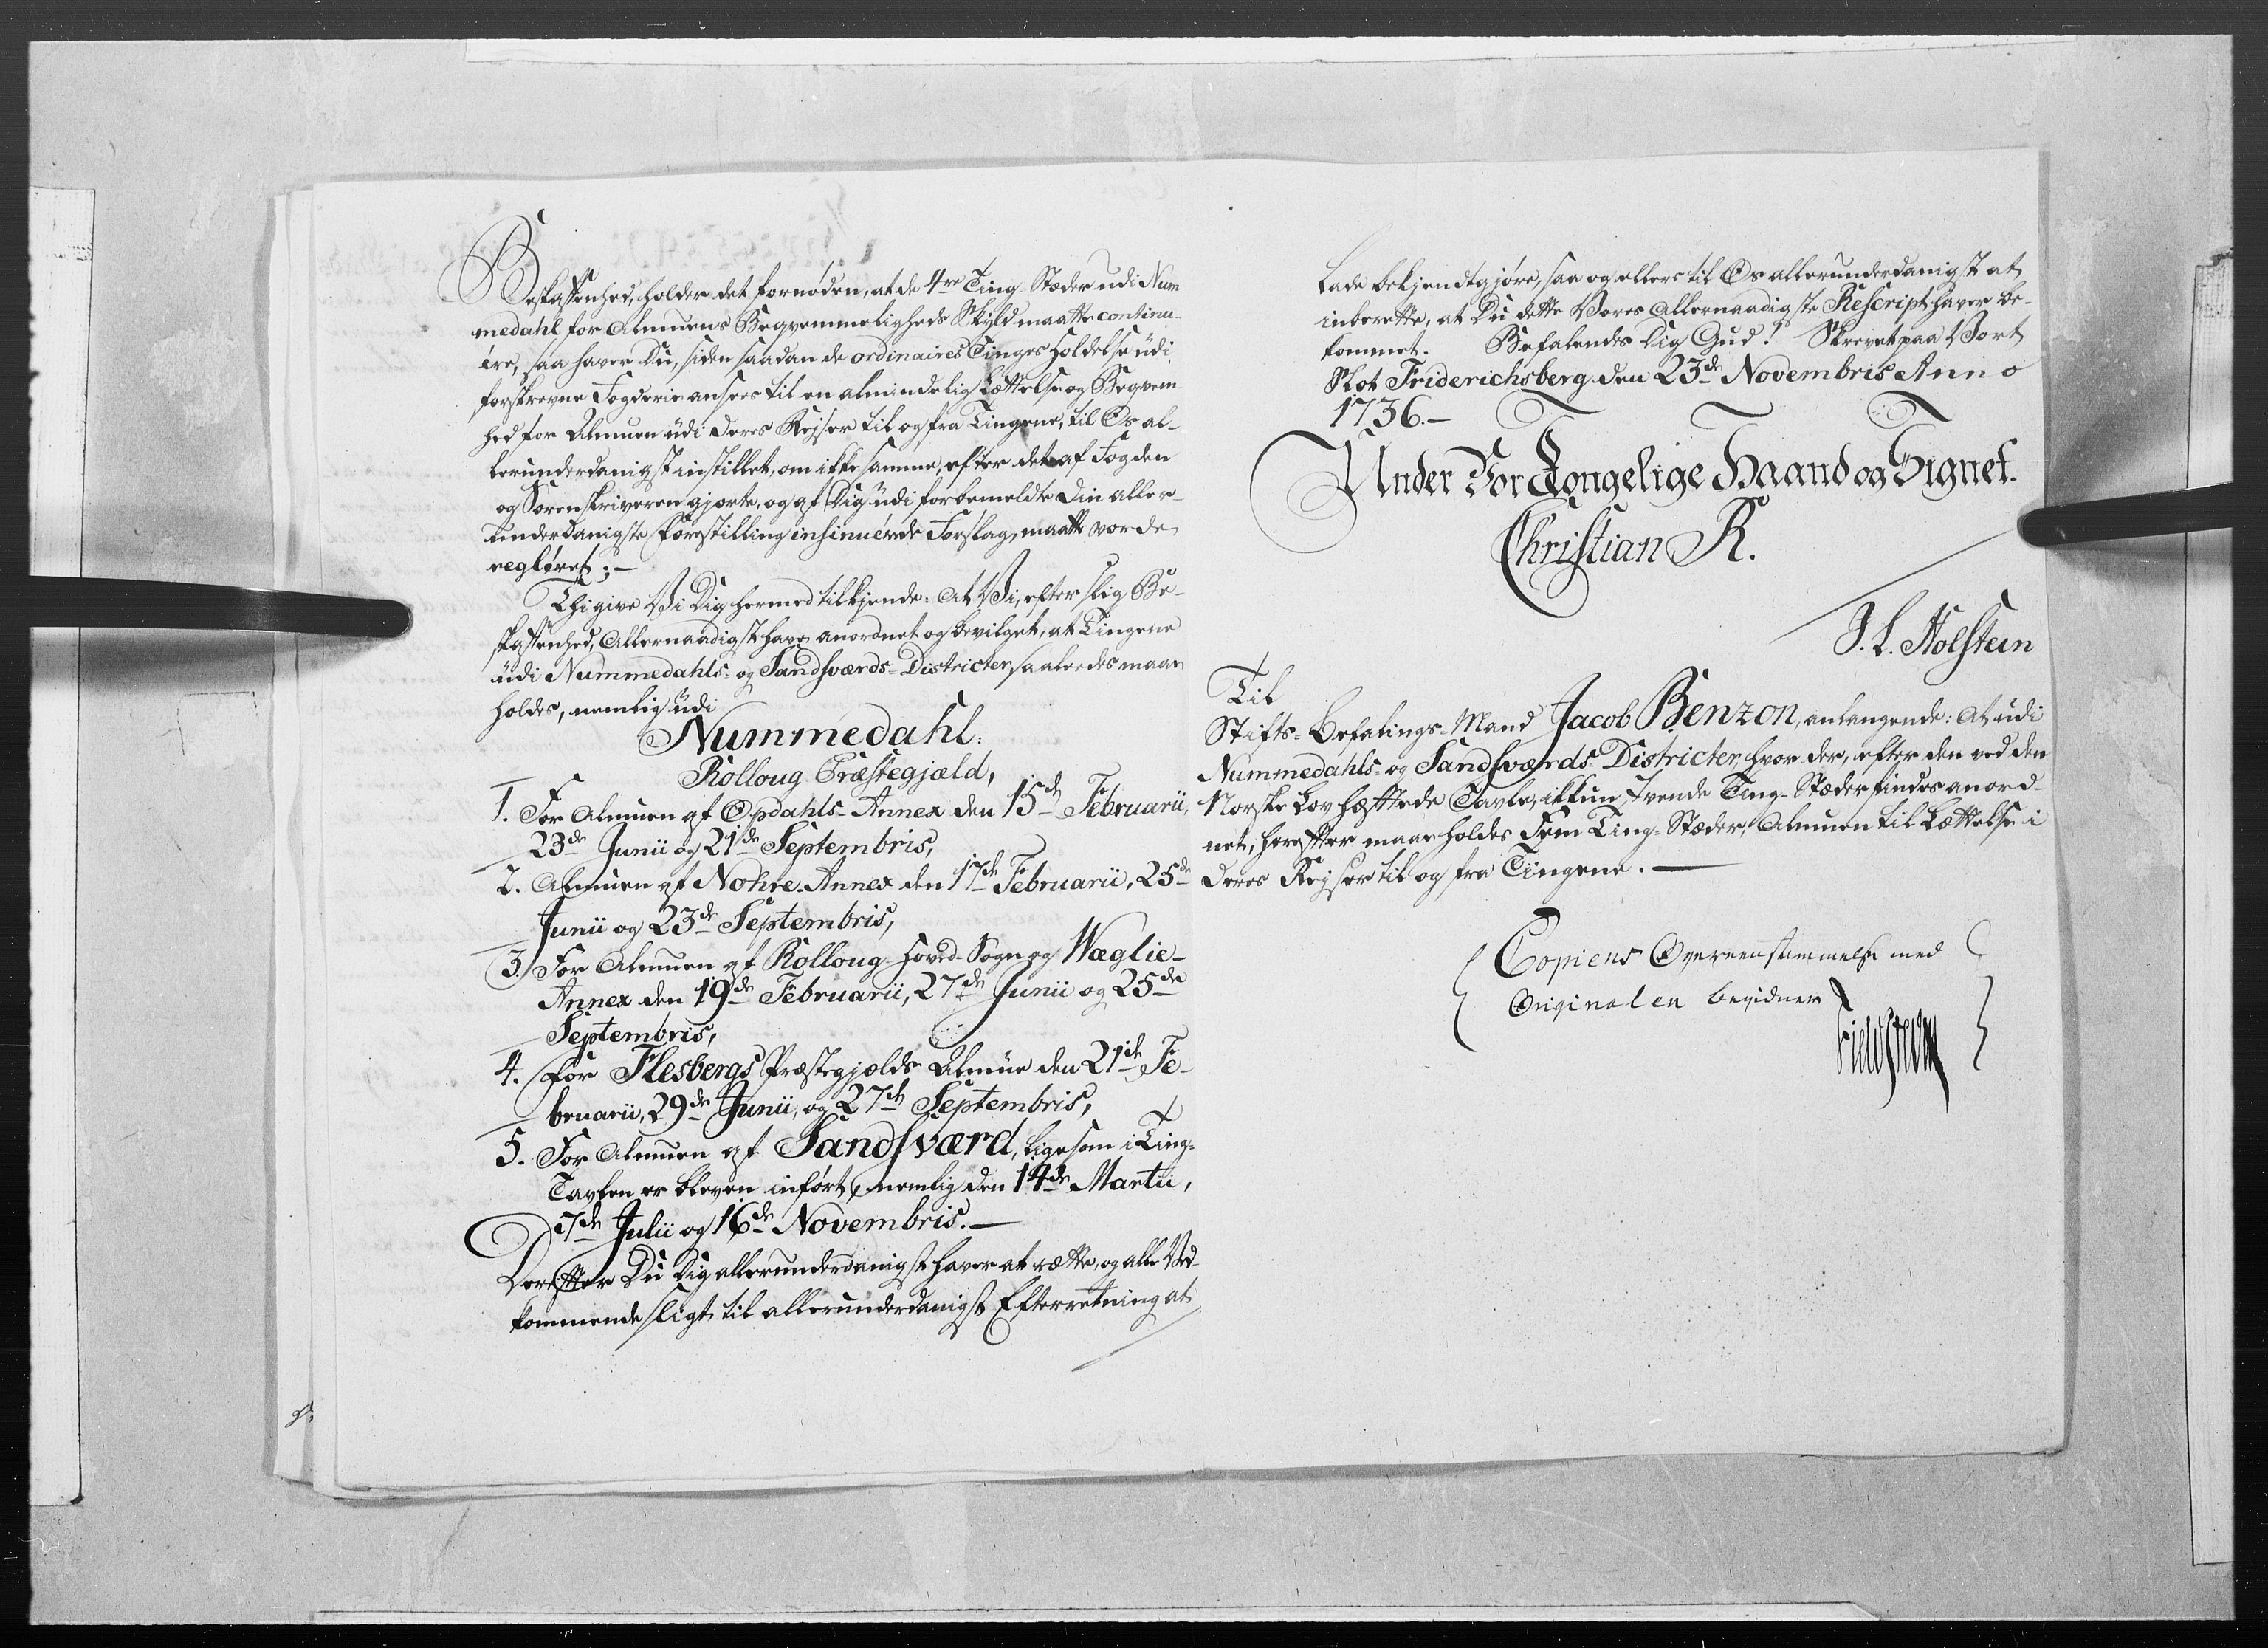 Beskaffenhed, holder det fornøden, at de 4re Ting-Stæder udi Num
medahl for Almuens Beqvemmeligheds Skyld maatte continu-
ere, saa haver Du, siden saadan de ordinaires Tinges Holdelse udi
forskrevne Fogderie ansees til en almindelig Lættelse og Beqvem
hed for Almuen udi deres Rejser til og fra Tingene, til Os al-
lerunderdanigst instillet, om ikke samme, efter det af Fogden
og Sorenskriveren gjorte, og af Dig udi forbemeldte Din aller-
underdanigste Forestilling insinuerede Forslag, maatte vorde
regleret; —
Thi give Vi Dig hermed tilkjende: At Vi, efter slig Be-
skaffenhed, Allernaadigst have anordnet og bevilget, at Tingene
udi Nummedahls- og Sandsværds-Districter saaledes maae
holdes, nemlig udi
Nummedahl:
Rolloug Præstegjæld,
1. For Almuen af Opdahls-Annex den 15de Februarii,
23de Junii og 21de Septembris,
2. Almuen af Nohre-Annex den 17de Februarii, 25de
Junii og 23de Septembris,
3. For Almuen af Rolloug-Hoved-Sogn og Wæglie-
Annex den 19de Februarii, 27de Junii og 25de
Septembris,
4. For Flesbergs Præstegjælds Almue den 21de Fe-
bruarii, 29de Junii, og 27de Septembris,
5. For Almuen af Sandsværd, ligesom i Ting-
Tavlen er bleven indført, nemlig den 14de Martii,
7de Julii og 16de Novembris. —
Derefter Du Dig allerunderdanigst haver at rætte, og alle Ved-
kommende sligt til allerunderdanigst Efterretning at
lade bekjendtgjøre, saa og ellers til Os allerunderdanigst at
inberette, at Du dette Vores Allernaadigste Rescript haver be-
kommet. Befalendes Dig Gud! Skrevet paa Vort
Slot Friderichsberg den 23de Novembris Anno
1736. —
Under Vor Kongelige Haand og Signet.
Christian R.
J. L. Holstein
Til
Stifts-Befalings-Mand Jacob Benzon, anlangende: At udi
Nummedahls- og Sandsværds-Districter, hvor der, efter den ved den
Norske Lov hæfftede Tavle, ikkun tvende Ting-Stæder findes anord-
net, herefter maae holdes Fem Ting-Stæder, Almuen til Lættelse i
deres Rejser til og fra Tingene. —
Copiens Overeenstemmelse med
Originalen bevidner